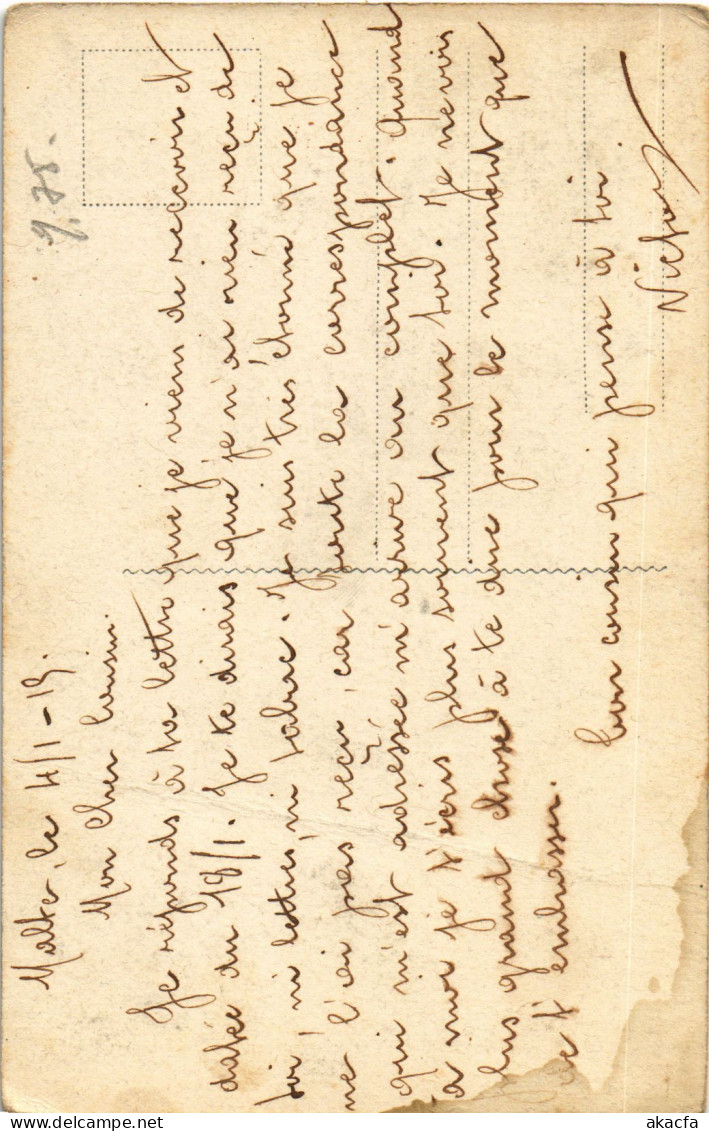 Malte, le 4/1-19.
Mon Cher Cousin.
Je réponds à ta lettre que je viens de recevoir et
datée du 18/1. Je te dirais que je n'ai rien reçu de
toi, ni lettres, ni tabac. Je suis très étonné que je
ne l'ai pas reçu, car toute la correspondance
qui m'est adressée m'arrive au complet. Quand
à moi je t'écris plus souvent que toi. Je ne vois
plus grand chose à te dire pour le moment que
de t'embrasser.
Ton cousin qui pense à toi
Victor
9.75.
delcampe.net
akacfa